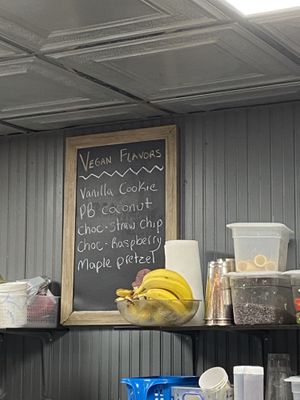 Vegan Flavors
Vanilla Cookie
PB coconut
Choc. Straw chip
Choc. Raspberry
Maple pretzel